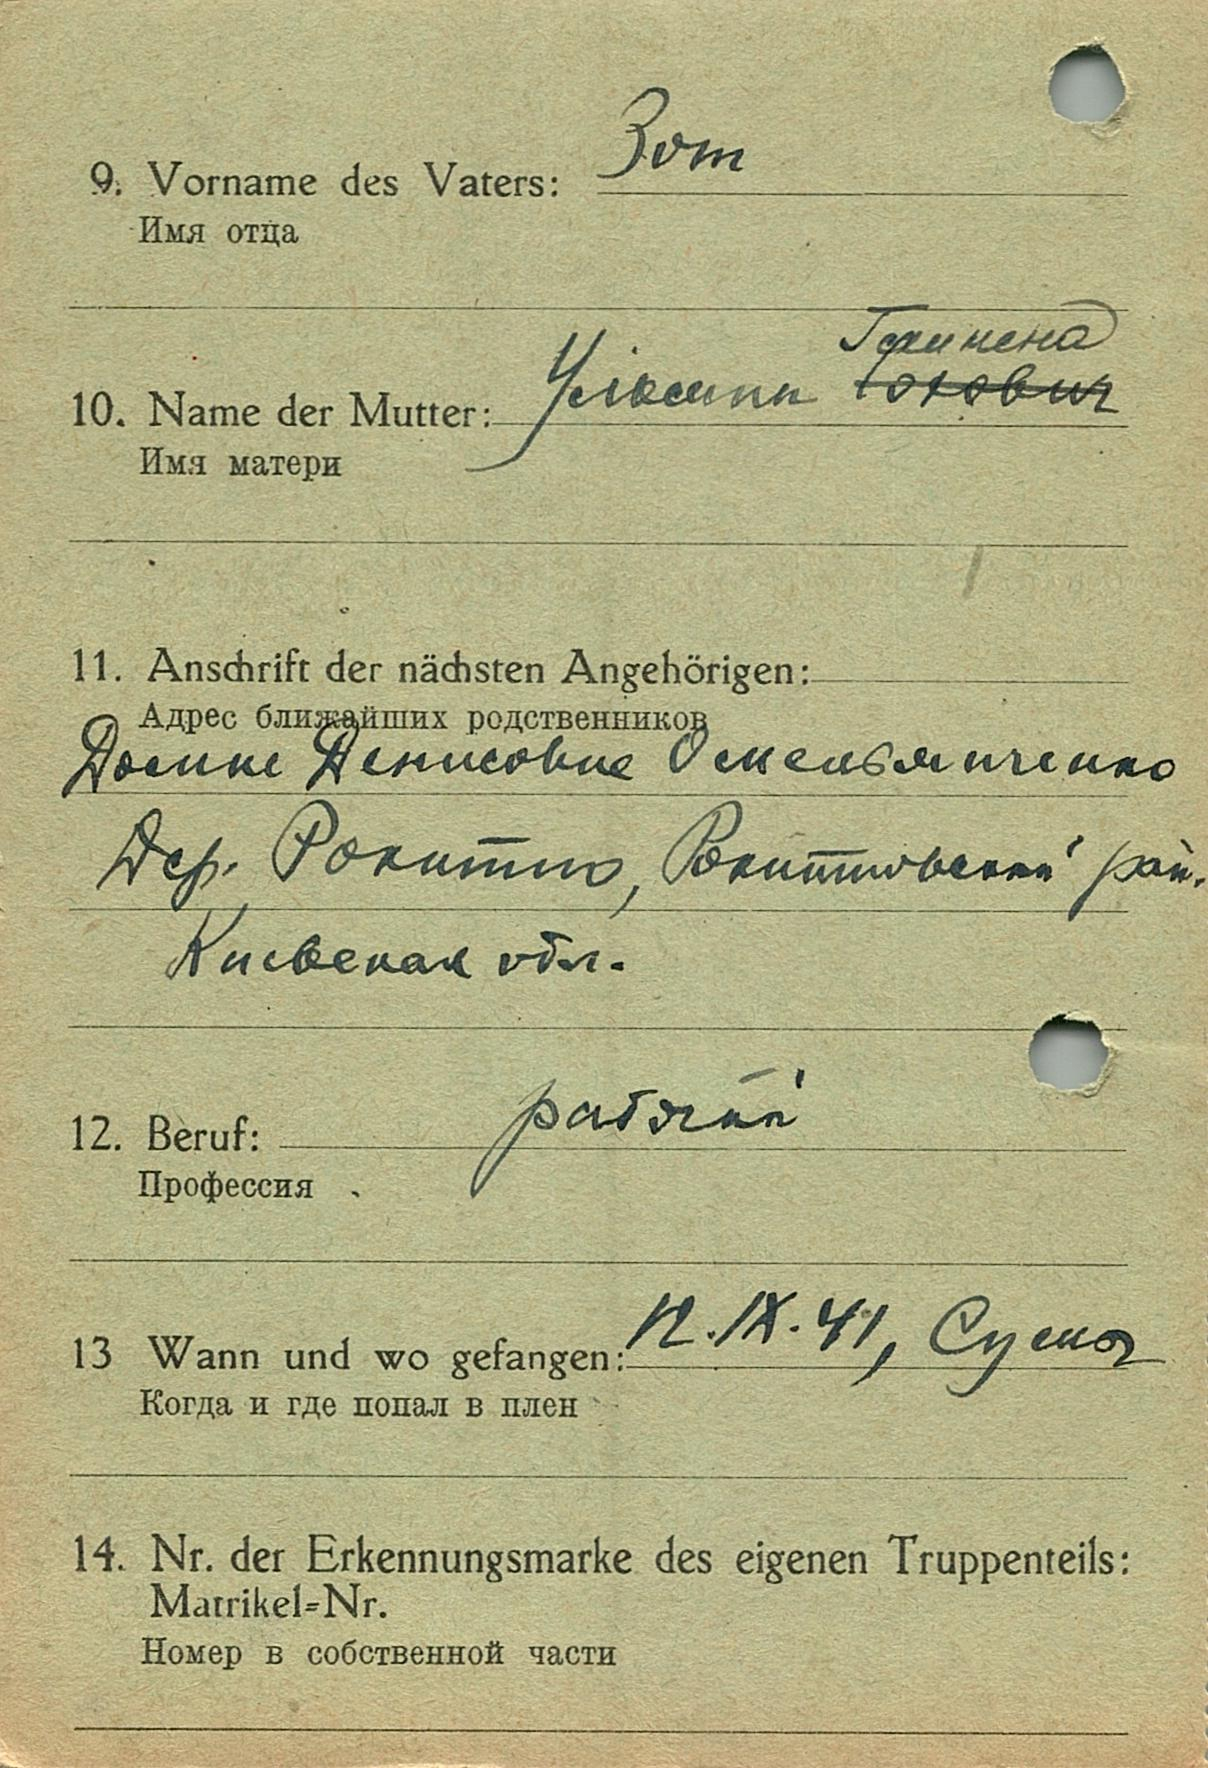 9. Vorname des Vaters: Зот
Имя отца
10. Name der Mutter:
Имя матери
11. Anschrift der nächsten Angehörigen:
Адрес ближайших родственников
Денисовне Омельянченко
Дер. Рокитно, Рокитновский рай.
Киевская обл.
12. Beruf: рабочий
Профессия
13 Wann und wo gefangen: 12.IX.41,
Когда и где попал в плен
14. Nr. der Erkennungsmarke des eigenen Truppenteils:
Matrikel=Nr.
Номер в собственной части